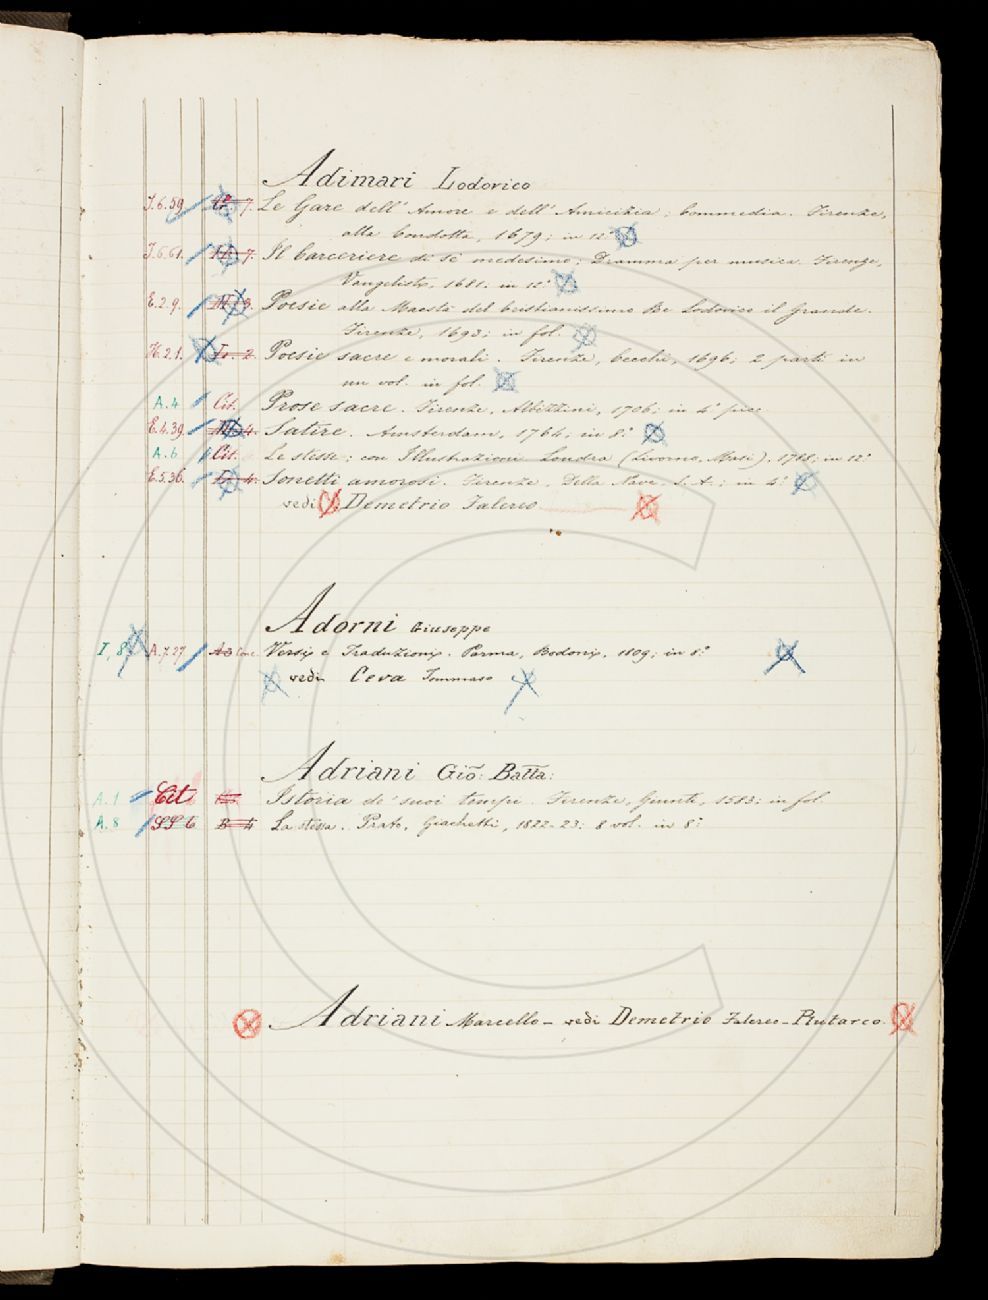 Adimari Lodovico
I.6.59 7. Le Gare dell' Amore e dell' Amicizia; Commedia. Firenze,
alla Condotta, 1679; in 12°
I.6.61. 7. Il Carceriere di sè medesimo; Dramma per musica. Firenze,
Vangelisti, 1681. in 12°
E.2.9. 3. Poesie alla Maestà del Cristianissimo Re Lodovico il Grande.
Firenze, 1693; in fol.
H.2.1. 2 Poesie sacre e morali. Firenze, Cecchi, 1696; 2 parti in
un vol. in fol.
A.4 Cit. Prose sacre. Firenze, Albizzini, 1706; in 4° picc.
E.4.39 4. Satire. Amsterdam, 1764; in 8°
A.6 Cit. Le stesse; con Illustrazioni Londra (Livorno, Masi). 1788; in 12°
E.5.36. 4. Sonetti amorosi. Firenze, Della Nave, s. A.; in 4°
vedi Demetrio Falereo
Adorni Giuseppe
I, 8 A.7.27 Versi e Traduzioni. Parma, Bodoni, 1809; in 8°
vedi Ceva Tommaso
Adriani Gio: Batta:
A.1 Cit Istoria de' suoi tempi. Firenze, Giunti, 1583; in fol.
A.8 SS 6 B 4 La stessa. Prato, Giachetti, 1822-23; 8 vol. in 8°
Adriani Marcello - vedi Demetrio Falereo - Plutarco.